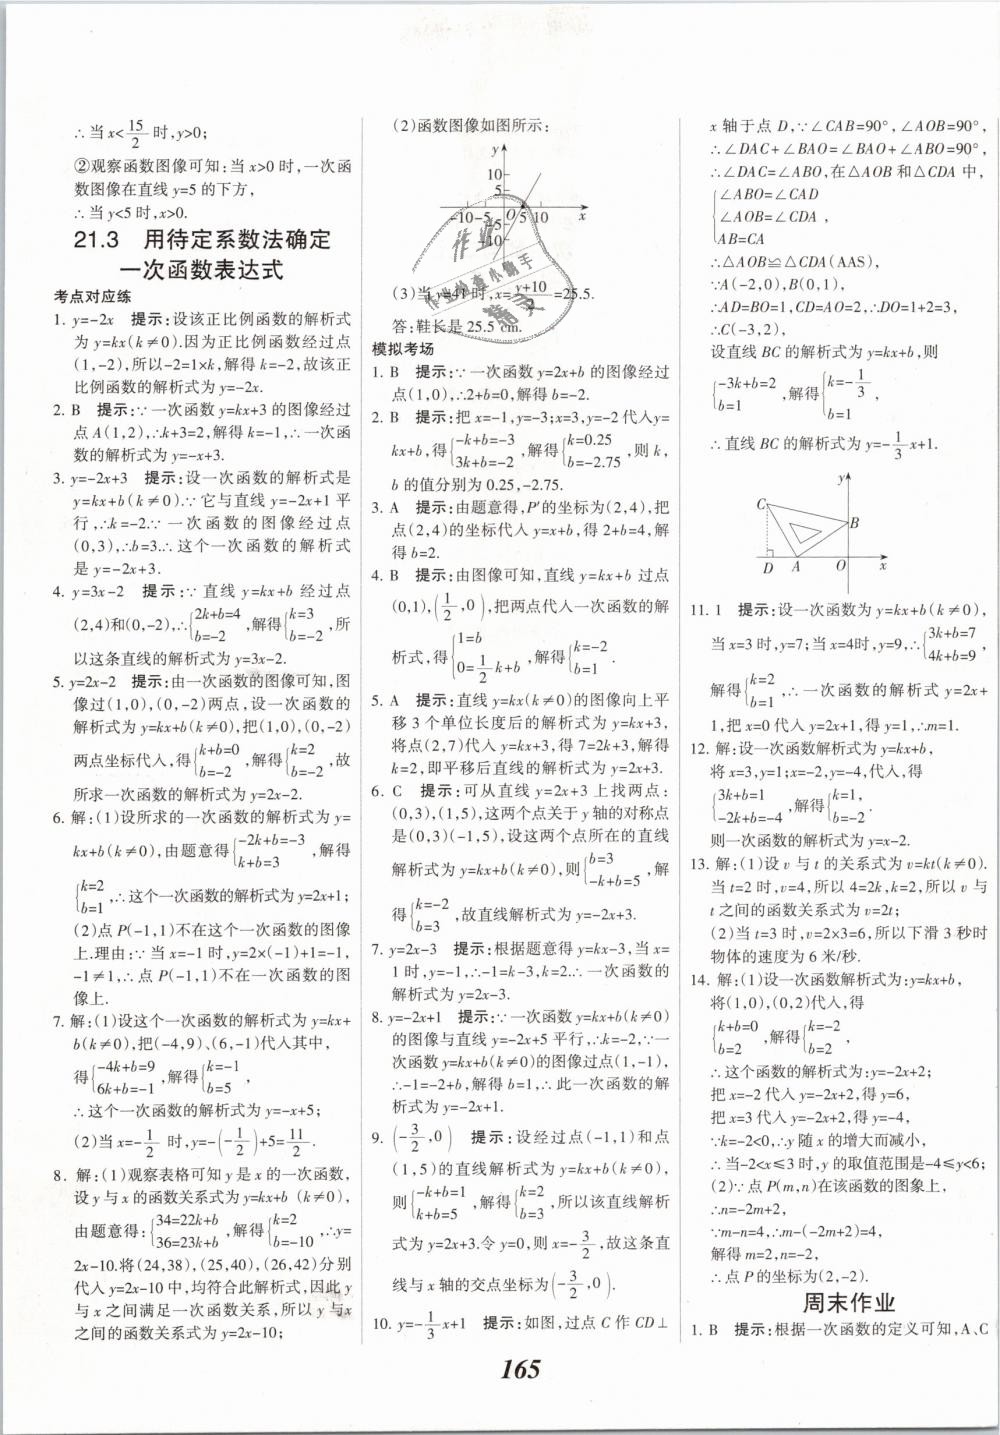 ∴当x<15/2时,y>0;
②观察函数图像可知:当x>0时,一次函
数图像在直线y=5的下方,
∴当y<5时,x>0.
21.3 用待定系数法确定
一次函数表达式
考点对应练
1. y=-2x 提示:设该正比例函数的解析式
为y=kx(k≠0).因为正比例函数经过点
(1,-2),所以-2=1×k,解得k=-2,故该正
比例函数的解析式为y=-2x.
2. B 提示:∵一次函数y=kx+3的图像经过
点A(1,2),∴k+3=2,解得k=-1,∴一次函
数的解析式为y=-x+3.
3. y=-2x+3 提示:设一次函数的解析式是
y=kx+b(k≠0).∵它与直线y=-2x+1平
行,∴k=-2.∵一次函数的图像经过点
(0,3),∴b=3.∴这个一次函数的解析式
是y=-2x+3.
4. y=3x-2 提示:∵直线y=kx+b经过点
(2,4)和(0,-2),∴{2k+b=4 b=-2,解得{k=3 b=-2,所
以这条直线的解析式为y=3x-2.
5. y=2x-2 提示:由一次函数的图像可知,图
像过(1,0),(0,-2)两点,设一次函数的
解析式为y=kx+b(k≠0),把(1,0),(0,-2)
两点坐标代入,得{k+b=0 b=-2,解得{k=2 b=-2,故
所求一次函数的解析式为y=2x-2.
6. 解:(1)设所求的一次函数的解析式为y=
kx+b(k≠0),由题意得{-2k+b=-3 k+b=3,解得
{k=2 b=1,∴这个一次函数的解析式为y=2x+1;
(2)点P(-1,1)不在这个一次函数的图像
上.理由:∵当x=-1时,y=2×(-1)+1=-1,
-1≠1,∴点P(-1,1)不在一次函数的图
像上.
7. 解:(1)设这个一次函数的解析式为y=kx+
b(k≠0),把(-4,9)、(6,-1)代入其中,
得{-4k+b=9 6k+b=-1,解得{k=-1 b=5,
∴这个一次函数的解析式为y=-x+5;
(2)当x=-1/2时,y=-(-1/2)+5=11/2.
8. 解:(1)观察表格可知y是x的一次函数,
设y与x的函数关系式为y=kx+b(k≠0),
由题意得:{34=22k+b 36=23k+b,解得{k=2 b=-10,∴y=
2x-10.将(24,38),(25,40),(26,42)分别
代入y=2x-10中,均符合此解析式,因此y
与x之间满足一次函数关系,所以y与x
之间的函数关系式为y=2x-10;
(2)函数图像如图所示:
y
10
5
-10 -5 O 5 10 x
-5
-10
(3)当y=41时,x=(y+10)/2=25.5.
答:鞋长是25.5 cm.
模拟考场
1. B 提示:∵一次函数y=2x+b的图像经过
点(1,0),∴2+b=0,解得b=-2.
2. B 提示:把x=-1,y=-3;x=3,y=-2代入y=
kx+b,得{-k+b=-3 3k+b=-2,解得{k=0.25 b=-2.75,则k,
b的值分别为0.25,-2.75.
3. A 提示:由题意得,P′的坐标为(2,4),把
点(2,4)的坐标代入y=x+b,得2+b=4,解
得b=2.
4. B 提示:由图像可知,直线y=kx+b过点
(0,1),(1/2,0),把两点代入一次函数的解
析式,得{1=b 0=1/2k+b,解得{k=-2 b=1.
5. A 提示:直线y=kx(k≠0)的图像向上平
移3个单位长度后的解析式为y=kx+3,
将点(2,7)代入y=kx+3,得7=2k+3,解得
k=2,即平移后直线的解析式为y=2x+3.
6. C 提示:可从直线y=2x+3上找两点:
(0,3),(1,5),这两个点关于y轴的对称点
是(0,3)(-1,5),设这两个点所在的直线
解析式为y=kx+b(k≠0),则{b=3 -k+b=5,解
得{k=-2 b=3,故直线解析式为y=-2x+3.
7. y=2x-3 提示:根据题意得y=kx-3,当x=
1时,y=-1,∴-1=k-3,k=2.∴一次函数的
解析式为y=2x-3.
8. y=-2x+1 提示:∵一次函数y=kx+b(k≠0)
的图像与直线y=-2x+5平行,∴k=-2,∵一
次函数y=kx+b(k≠0)的图像过点(1,-1),
∴-1=-2+b,解得b=1,∴此一次函数的解
析式为y=-2x+1.
9. (-3/2,0) 提示:设经过点(-1,1)和点
(1,5)的直线解析式为y=kx+b(k≠0),
则{-k+b=1 k+b=5,解得{k=2 b=3,所以该直线解析
式为y=2x+3.令y=0,则x=-3/2,故这条直
线与x轴的交点坐标为(-3/2,0).
10. y=-1/3x+1 提示:如图,过点C作CD⊥
x轴于点D,∵∠CAB=90°,∠AOB=90°,
∴∠DAC+∠BAO=∠BAO+∠ABO=90°,
∴∠DAC=∠ABO,在△AOB和△CDA中,
{∠ABO=∠CAD
∠AOB=∠CDA,
AB=CA
∴△AOB≌△CDA(AAS),
∵A(-2,0),B(0,1),
∴AD=BO=1,CD=AO=2,∴DO=1+2=3,
∴C(-3,2),
设直线BC的解析式为y=kx+b,则
{-3k+b=2 b=1,解得{k=-1/3 b=1,
∴直线BC的解析式为y=-1/3x+1.
y
C
B
D A O x
11. 1 提示:设一次函数为y=kx+b(k≠0),
当x=3时,y=7;当x=4时,y=9,∴{3k+b=7 4k+b=9,
解得{k=2 b=1,∴一次函数的解析式y=2x+
1,把x=0代入y=2x+1,得y=1,∴m=1.
12. 解:设一次函数解析式为y=kx+b,
将x=3,y=1;x=-2,y=-4,代入,得
{3k+b=1 -2k+b=-4,解得{k=1, b=-2.
则一次函数的解析式为y=x-2.
13. 解:(1)设v与t的关系式为v=kt(k≠0).
当t=2时,v=4,所以4=2k,k=2,所以v与
t之间的函数关系式为v=2t;
(2)当t=3时,v=2×3=6,所以下滑3秒时
物体的速度为6米/秒.
14. 解:(1)设一次函数解析式为:y=kx+b,
将(1,0),(0,2)代入,得
{k+b=0 b=2,解得{k=-2 b=2,
∴这个函数的解析式为:y=-2x+2;
把x=-2代入y=-2x+2,得y=6,
把x=3代入y=-2x+2,得y=-4,
∵k=-2<0,∴y随x的增大而减小,
∴当-2<x≤3时,y的取值范围是-4≤y<6;
(2)∵点P(m,n)在该函数的图象上,
∴n=-2m+2,
∵m-n=4,∴m-(-2m+2)=4,
解得m=2,n=-2,
∴点P的坐标为(2,-2).
周末作业
1. B 提示:根据一次函数的定义可知,A、C
165
作业
作业检查小助手
精灵